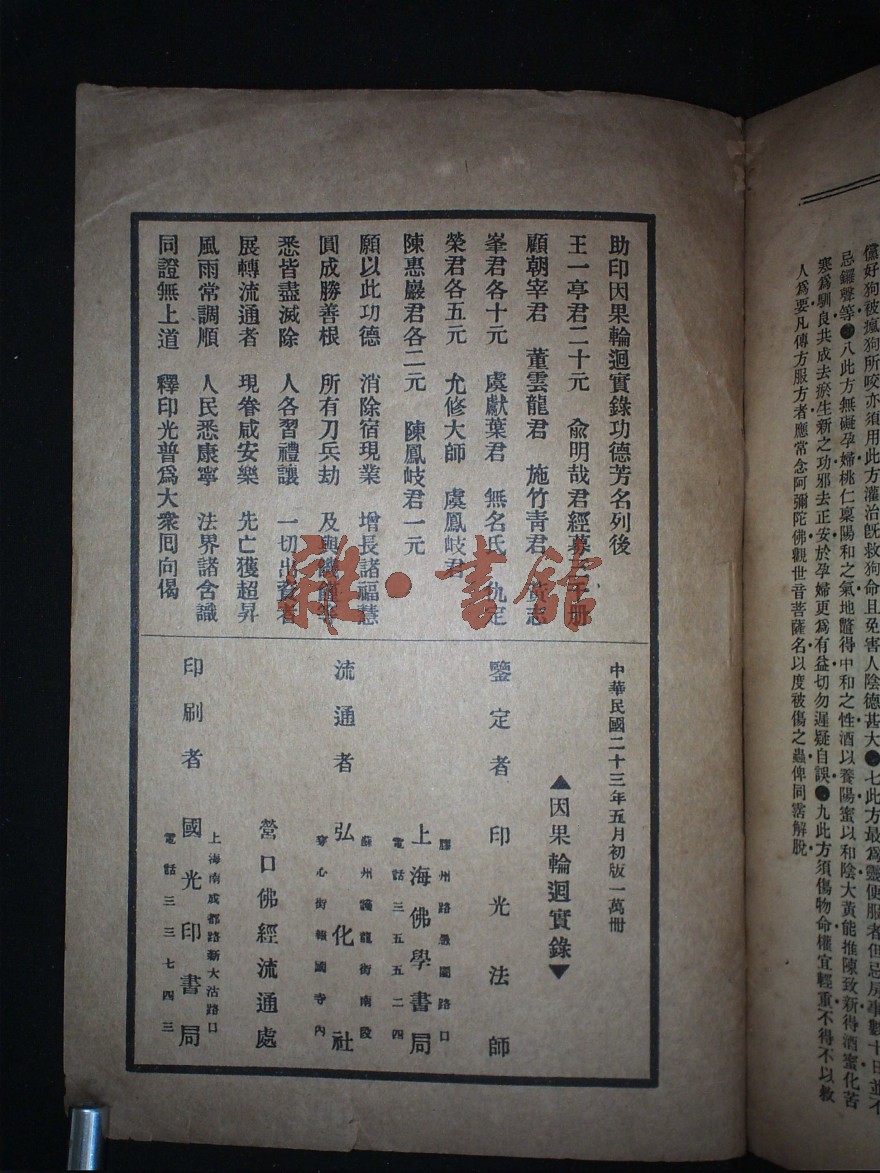 儻好狗被瘋狗所咬亦須用此方灌治旣救狗命且免害人陰德甚大●七此方最爲靈便服者但忌房事數十日並不
忌鑼聲等●八此方無礙孕婦桃仁稟陽和之氣地鼈得中和之性酒以養陽蜜以和陰大黃能推陳致新得酒蜜化苦
寒爲馴良共成去瘀生新之功邪去正安於孕婦更爲有益切勿遲疑自誤●九此方須傷物命權宜輕重不得不以救
人爲要凡傳方服方者應常念阿彌陀佛觀世音菩薩名以度被傷之蟲俾同霑解脫
助印因果輪迴實錄功德芳名列後
王一亭君二十元 兪明哉君經募 千冊
顧朝宰君 董雲龍君 施竹青君 黃志
峯君各十元 虞獻葉君 無名氏 仇定
榮君各五元 允修大師 虞鳳岐君
陳惠巖君各二元 陳鳳岐君一元
願以此功德 消除宿現業 增長諸福慧
圓成勝善根 所有刀兵劫 及與饑饉等
悉皆盡滅除 人各習禮讓 一切出資者
展轉流通者 現眷咸安樂 先亡獲超昇
風雨常調順 人民悉康寧 法界諸含識
同證無上道 釋印光普爲大衆囘向偈
中華民國二十三年五月初版一萬冊
▲因果輪迴實錄▼
鑒定者 印光法師
膠州路愚園路口
上海佛學書局
電話三五五二四
流通者
蘇州護龍街南段
弘化社
穿心街報國寺內
營口佛經流通處
印刷者
上海南成都路新大沽路口
國光印書局
電話三三七四三
雜·書館